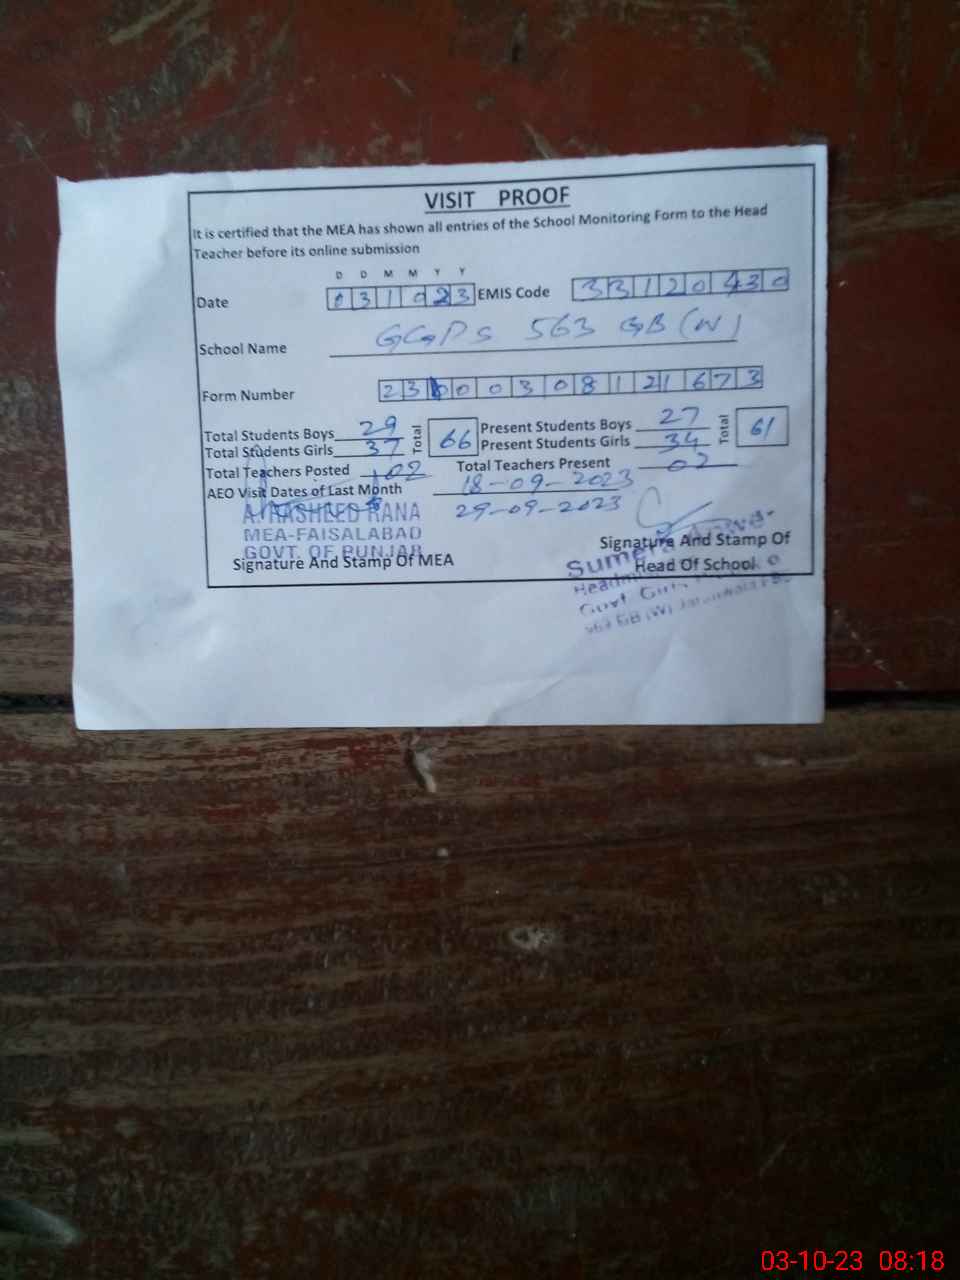 VISIT PROOF
It is certified that the MEA has shown all entries of the School Monitoring Form to the Head
Teacher before its online submission
D D M M Y Y
Date 031023 EMIS Code 33120430
School Name GGPS 563 GB (W)
Form Number 23 00308121673
Total Students Boys 29 Total 66 Present Students Boys 27 Total 61
Total Students Girls 37 Present Students Girls 34
Total Teachers Posted 02 Total Teachers Present 02
AEO Visit Dates of Last Month 18-09-2023
29-09-2023
A. RASHEED RANA
MEA-FAISALABAD
GOVT. OF PUNJAB
Signature And Stamp Of MEA
Signature And Stamp Of
Head Of School
Govt Girls
563 GB (W)
03-10-23 08:18